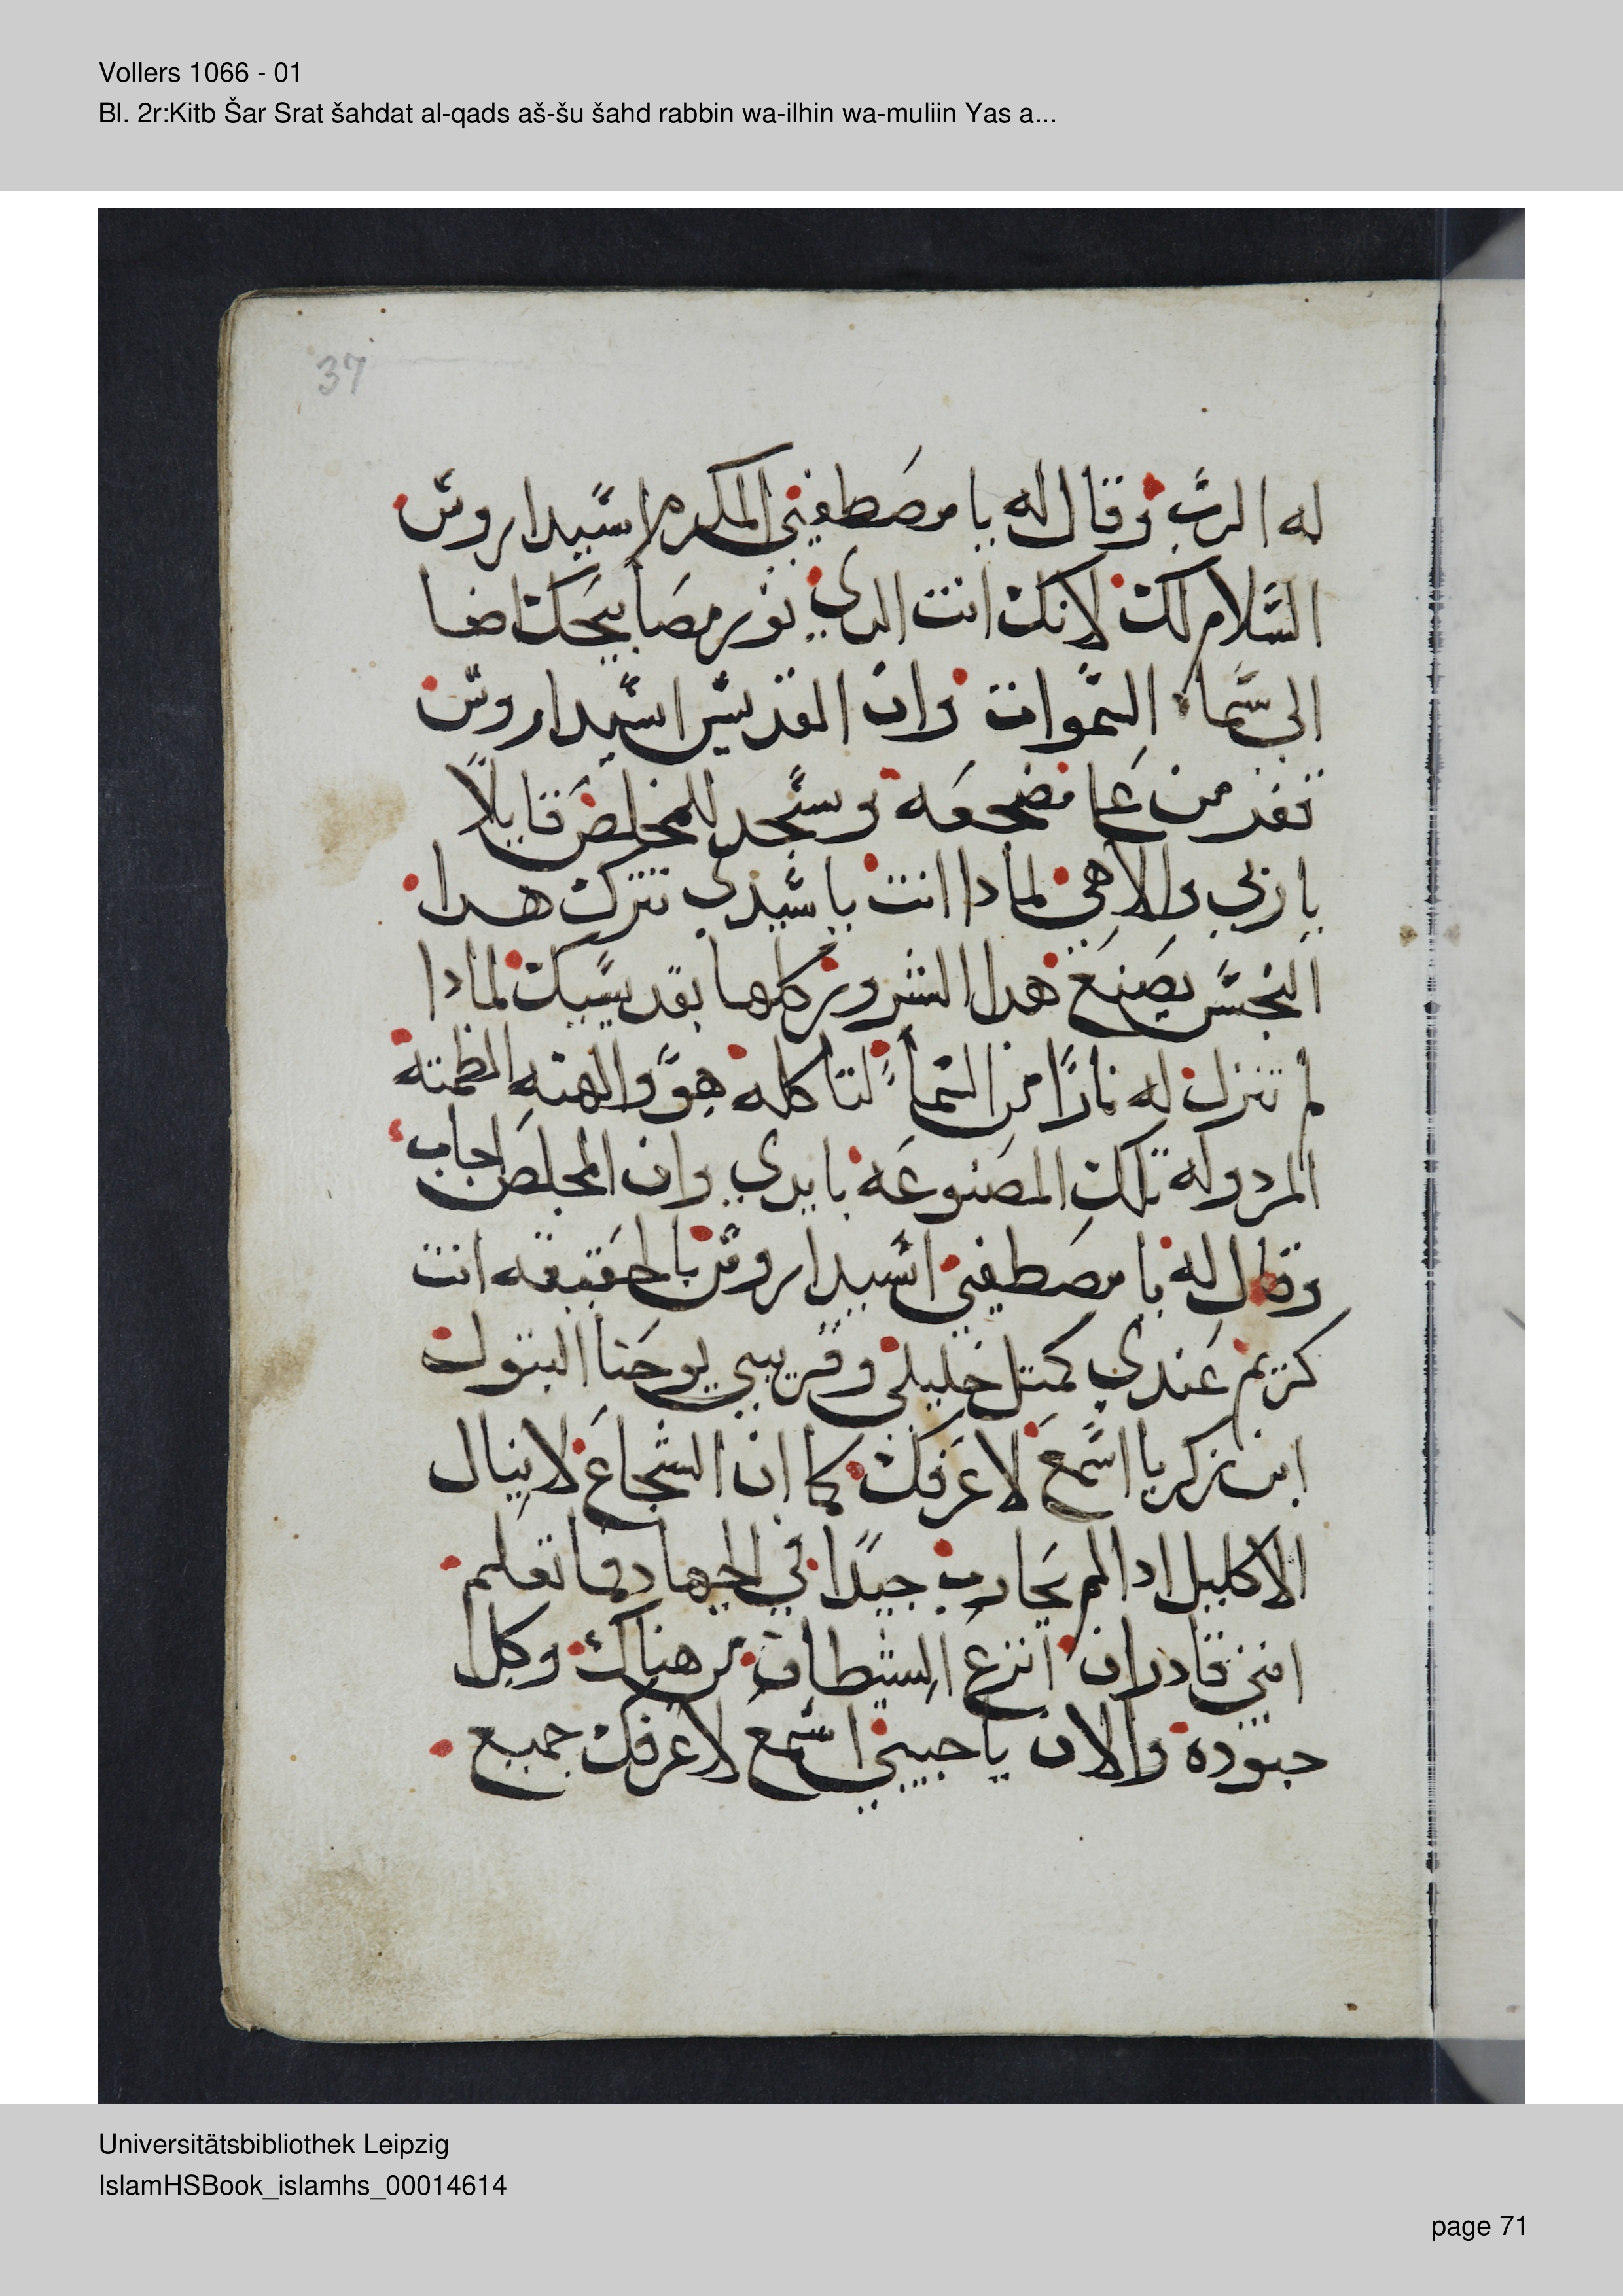 Vollers 1066 - 01
Bl. 2r:Kitb Šar Srat šahdat al-qads aš-šu šahd rabbin wa-ilhin wa-muliin Yas a...
37
له الرب وقال له يا مصطفيي المكرم اسيداروس
السلام لك لانك انت الدي نور مصابيحك اضا
الى سما السموات وان القديس اسيداروس
قفز من على مضجعه وسجد للمخلص قايلاً
يا ربي والاهي لمادا انت يا سيدي تترك هدا
النجس يصنع هدا الشرور كلها بقديسيك لمادا
لم تنزل له نارًا من السما لتاكله هو والهته الطمته
المردوله تلك المصنوعه بايدي وان المخلص اجاب
وقال له يا مصطفيي اسيداروس بالحقيقه انت
كريم عندي كمتل خليلي وقريبي يوحنا البتول
ابن زكريا اسمع لاعرفك كما ان الشجاع لا ينال
الاكليل ادا لم يحارب جيدًا في الجهاد وما تعلم
انني قادر ان انزع الشيطان من هناك وكل
جنوده والان يا حبيبي اسمع لاعرفك جميع
Universitätsbibliothek Leipzig
IslamHSBook_islamhs_00014614
page 71